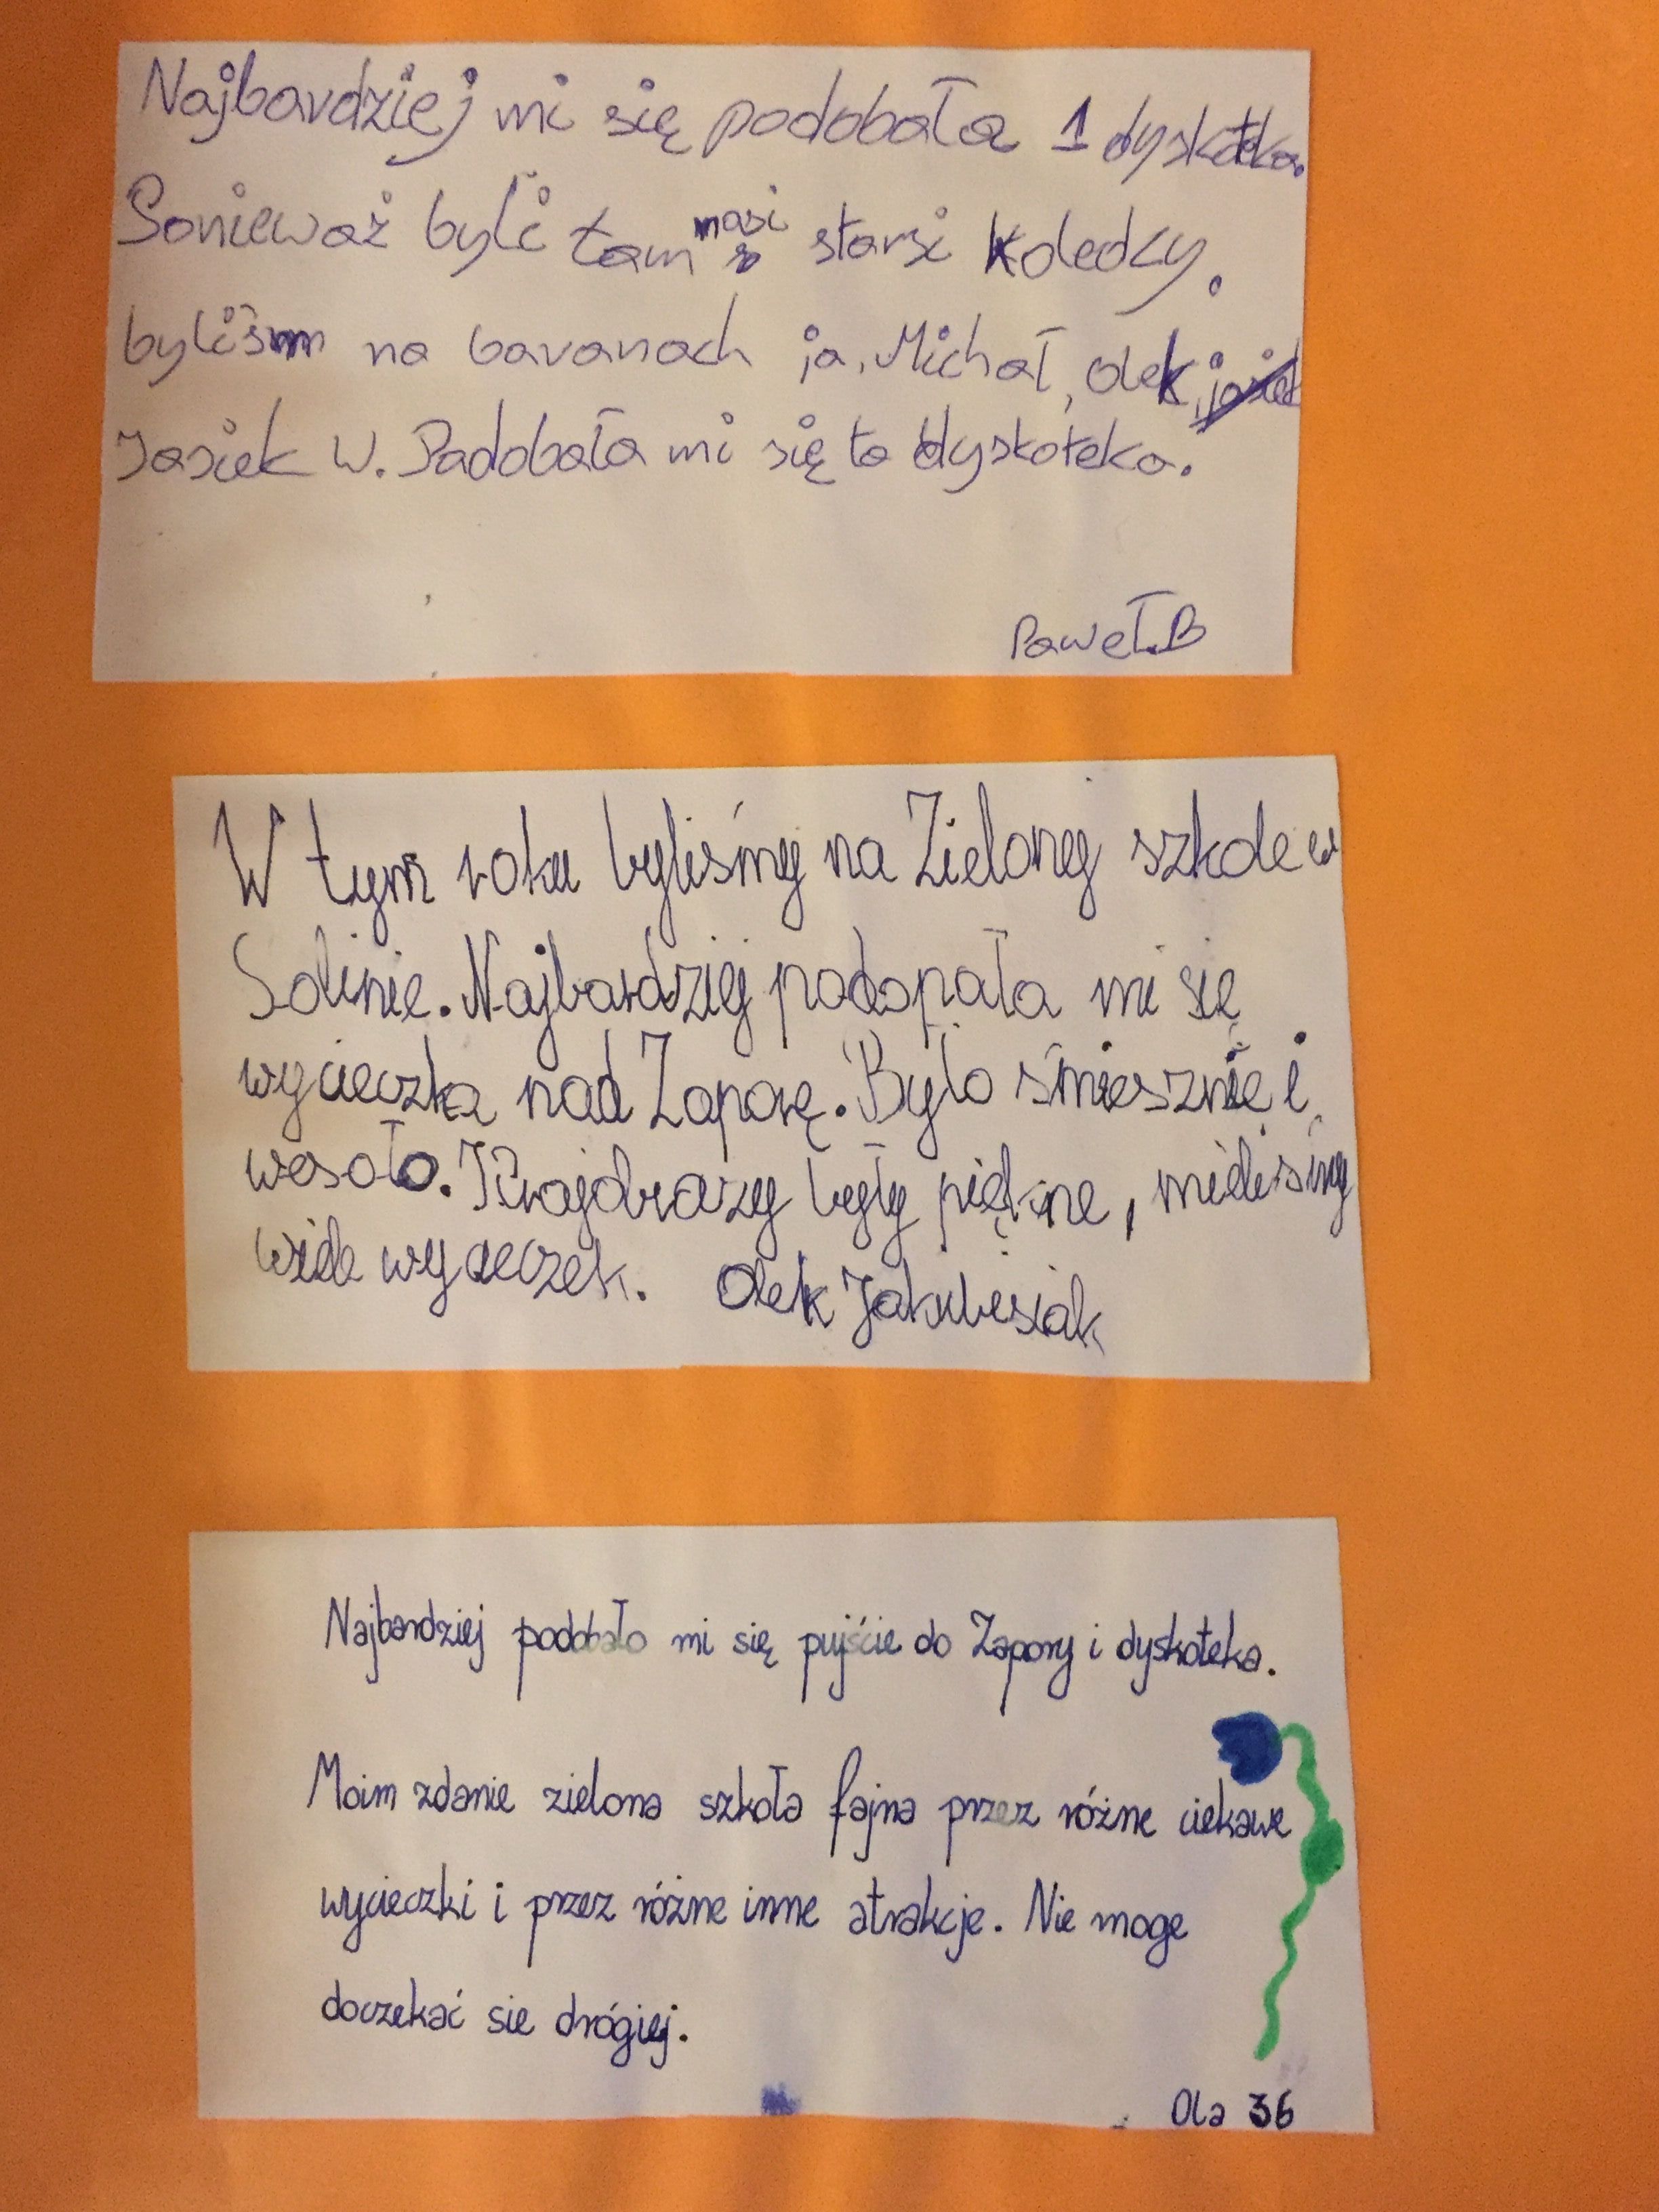 Najbardziej mi się podobała 1 dyskoteka.
Poniewaź byli tam nasi starsi koledcy.
byliśm na baranach ja, Michał, Olek,
Jasiek W. Padobała mi się ta dyskoteka.
Paweł.B
W tym roku byliśmy na Zielonej szkole w
Solinie. Najbardziej podopała mi się
wycieczka nad Zaporę. Było śmiesznie i
wesoło. Krajobrazy były piękne, mieliśmy
wiele wycieczek. Olek Jakubesiak
Najbardziej podobało mi się pujście do Zapory i dyskoteka.
Moim zdanie zielona szkoła fajna przez różne ciekawe
wycieczki i przez różne inne atrakcje. Nie moge
doczekać sie drógiej.
Ola 36